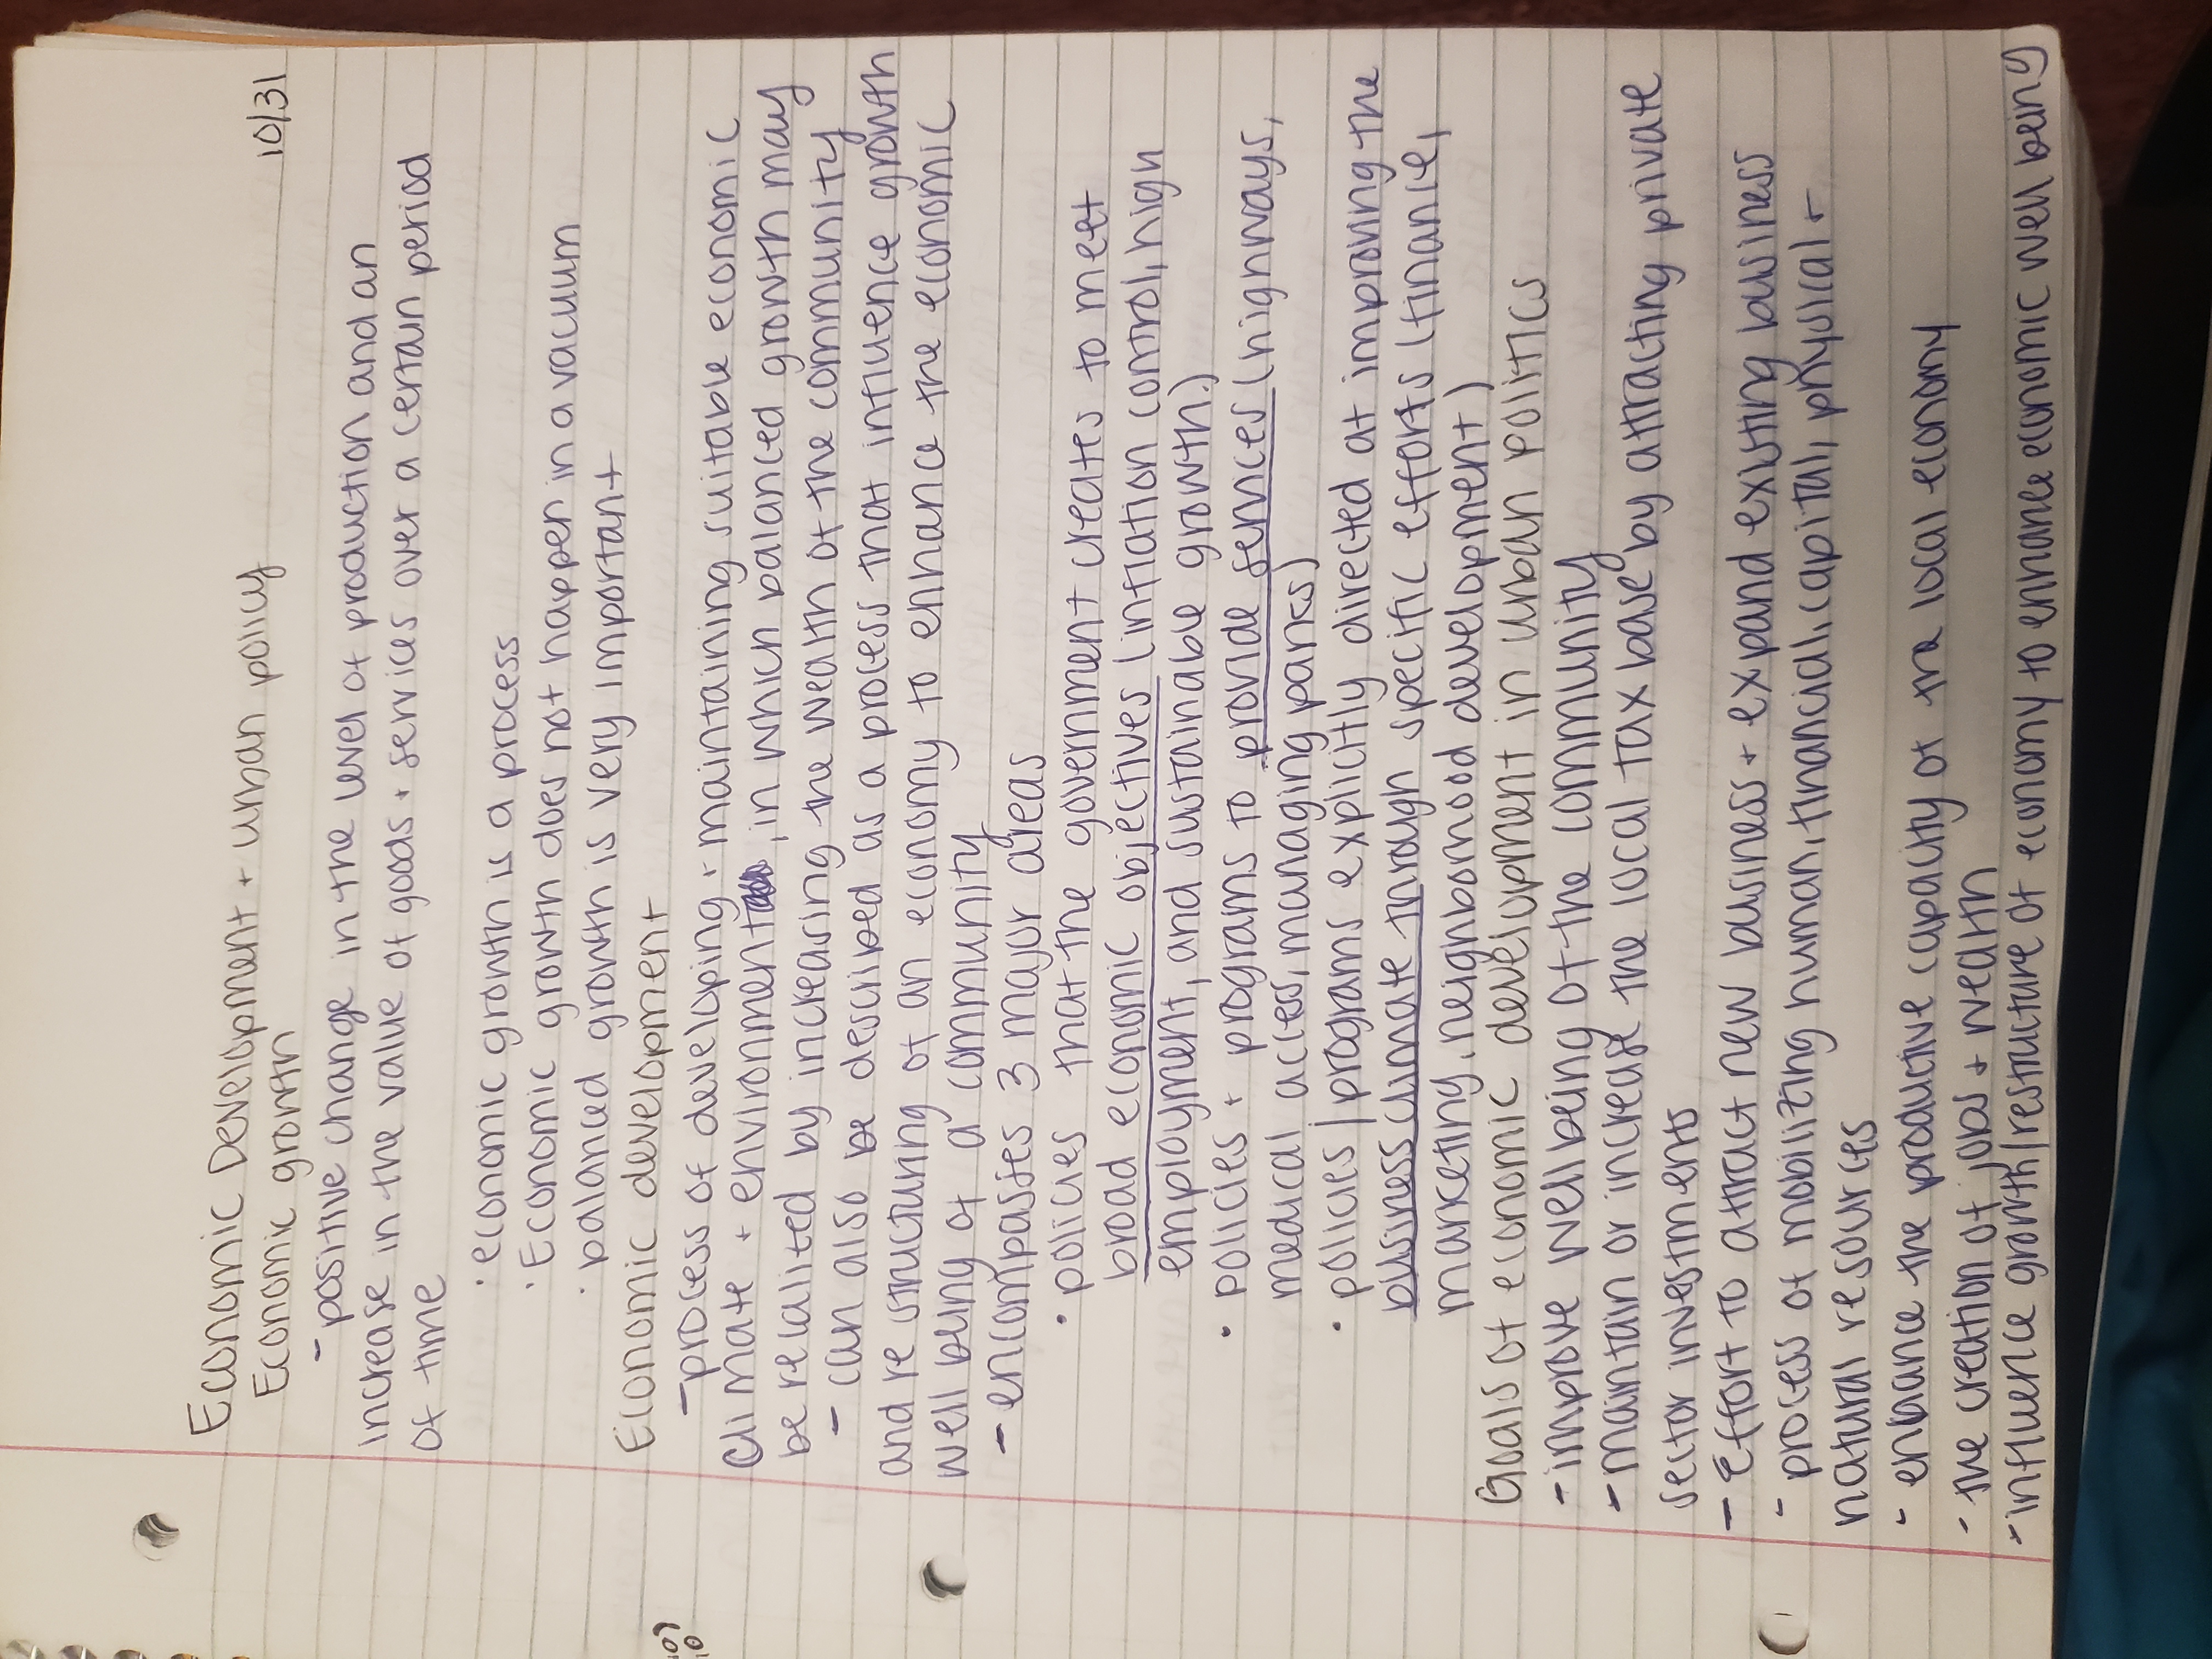 Economic Development + urban policy
10/31
Economic growth
- positive change in the level of production and an
increase in the value of goods + services over a certain period
of time
· economic growth is a process
· Economic growth does not happen in a vacuum
· balanced growth is very important
Economic development
- process of developing + maintaining suitable economic
climate + environment, in which balanced growth may
be relalized by increasing the wealth of the community
- can also be described as a process that influence growth
and re structuring of an economy to enhance the economic
well being of a community
- encompasses 3 major areas
· policies that the government creates to meet
broad economic objectives (inflation control, high
employment, and sustainable growth.)
· policies + programs to provide services (highways,
medical access, managing parks)
· policies/programs explicitly directed at improving the
business climate through specific efforts (finance,
marketing, neighborhood development)
Goals of economic development in urban politics
- improve wellbeing of the community
- maintain or increase the local tax base by attracting private
sector investments
- Effort to attract new business + expand existing business
- process of mobilizing human, financial, capital, physical +
natural resources
- enhance the productive capacity of the local economy
- the creation of jobs + wealth
- influence growth/restructure of economy to enhance economic well being